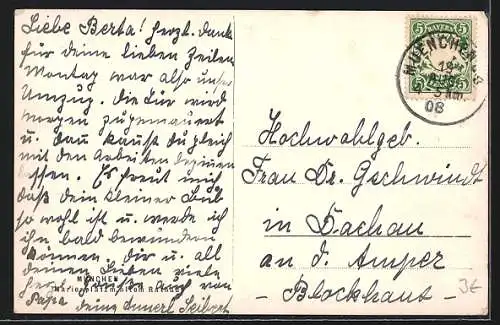 Liebe Berta! Herzl. Dank
für deine lieben Zeilen
Montag war also unser
Umzug. Die Tür wird
morgen zugemauert
u. dann kannst du gleich
mit den Arbeiten beginnen
lassen. Es freut mich
daß dein kleiner Bub
so wohl ist u. werde ich
ihn bald bewundern
können. Dir u. all
deinen Lieben viele
Grüße auch von
Papa deine Seibert
MÜNCHEN
Marienplatz mit altem Rathaus
BAYERN
5 5
5 5
MUENCHEN
08
Hochwohlgeb.
Frau Dr. Gschwindt
in Dachau
an d. Amper
- Blockhaus -
3E